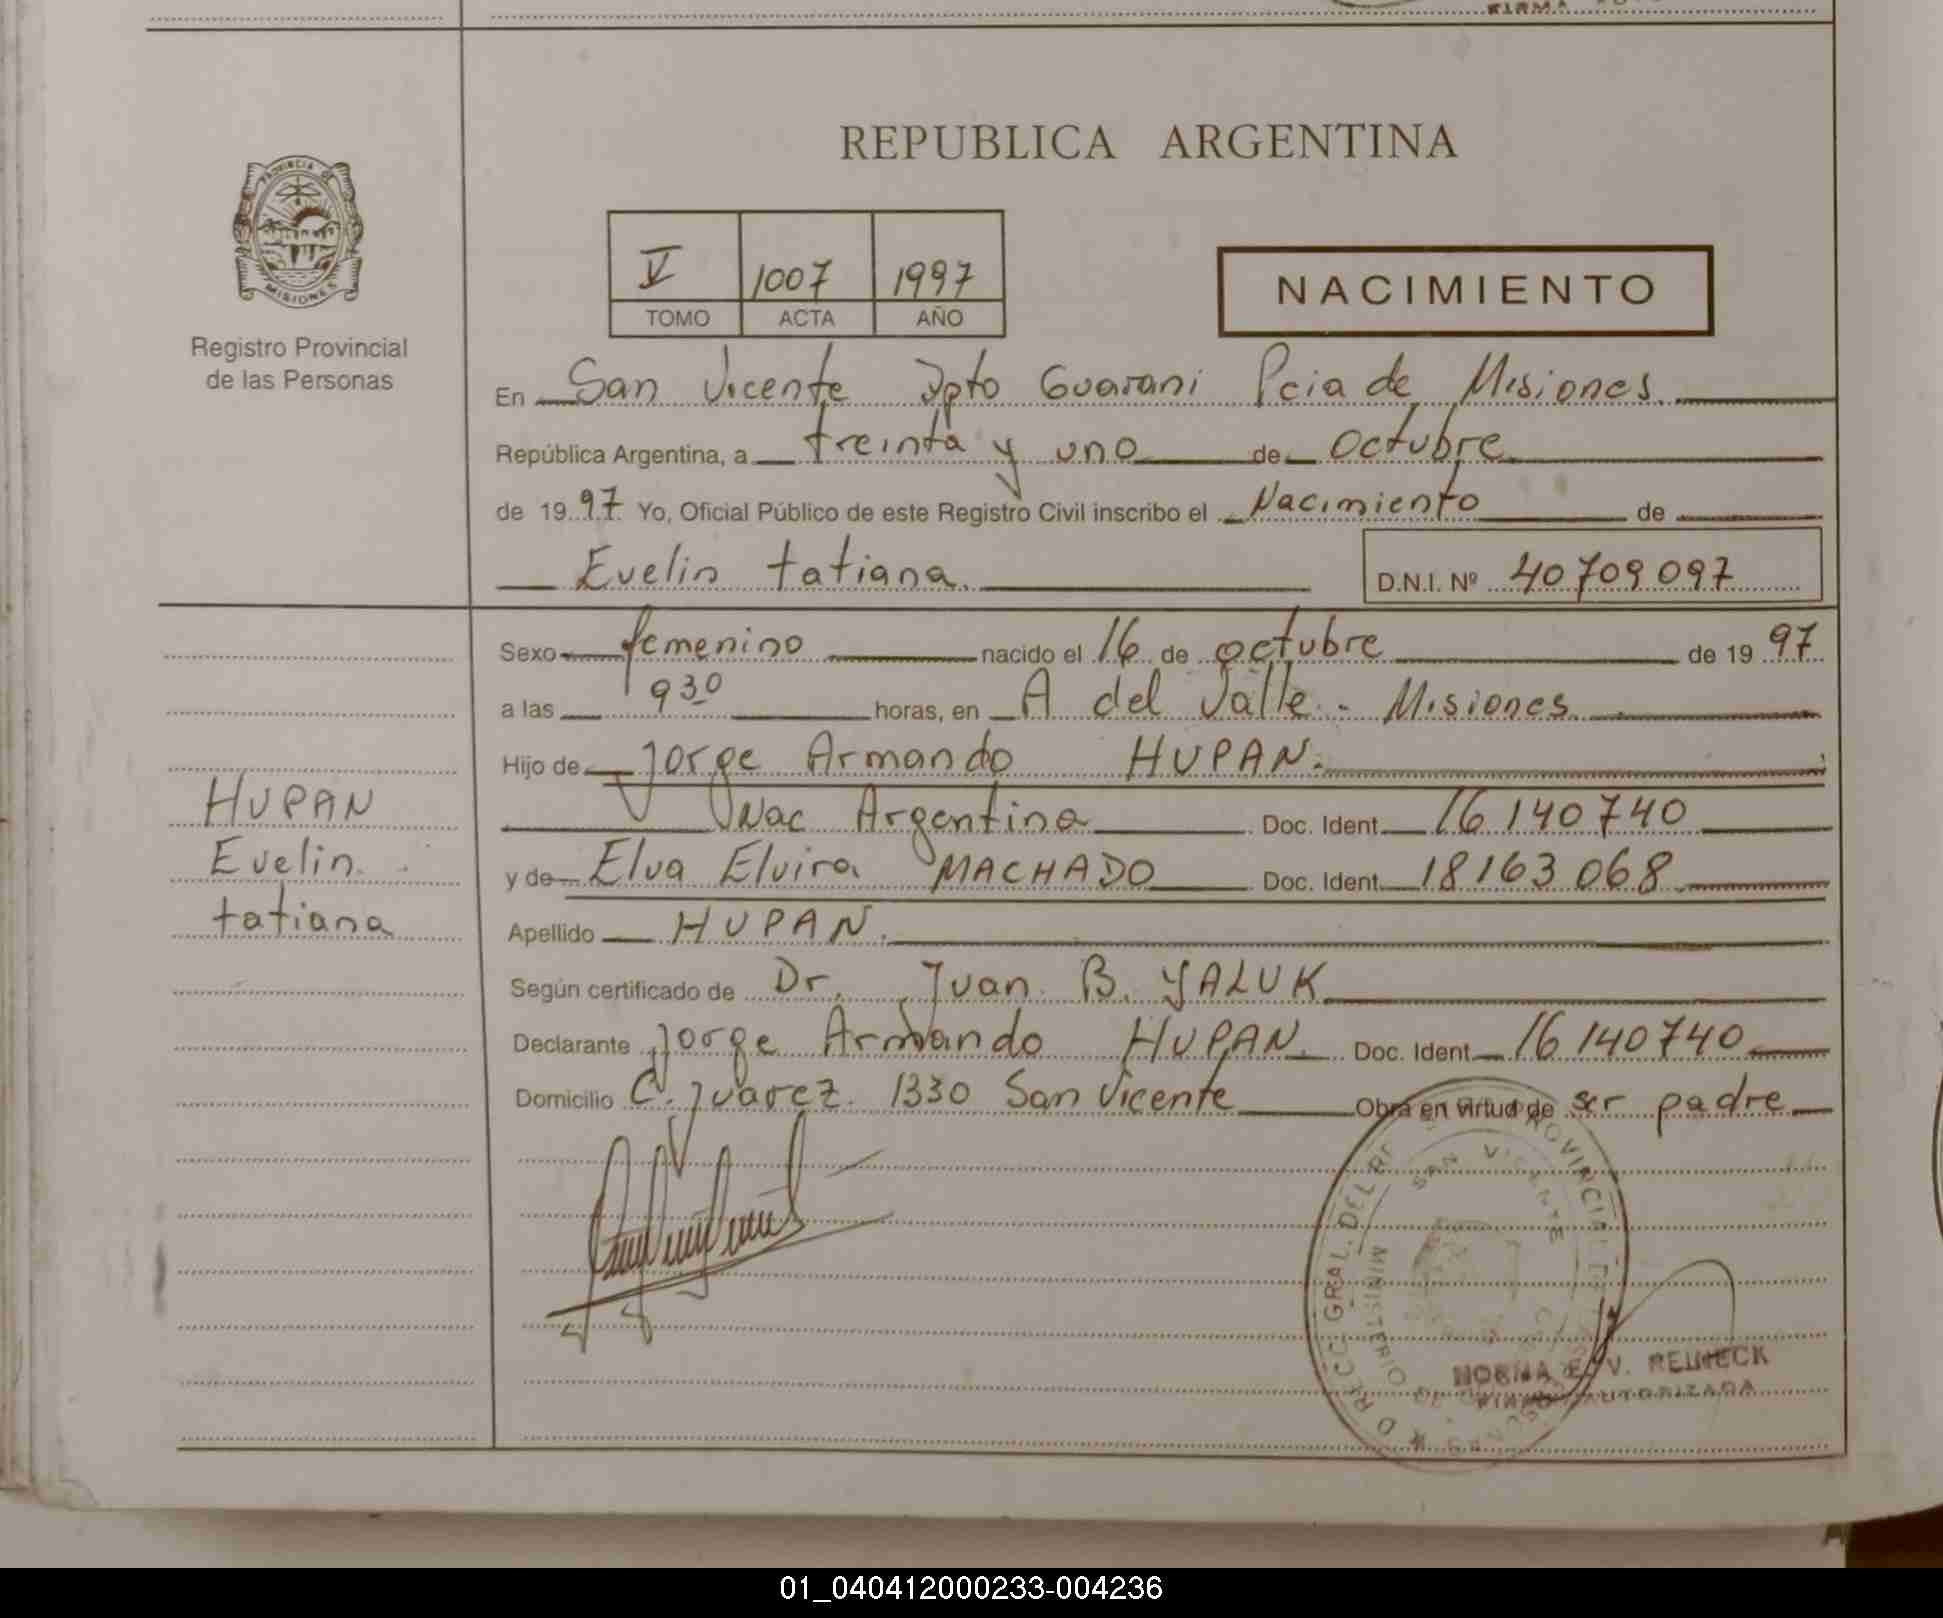 REPUBLICA ARGENTINA
PROVINCIA DE
MISIONES
Registro Provincial
de las Personas
V 1007 1997
TOMO ACTA AÑO
NACIMIENTO
En San Vicente Dpto Guarani Pcia de Misiones
República Argentina, a treinta y uno de octubre
de 1997 Yo, Oficial Público de este Registro Civil inscribo el Nacimiento de
Evelin tatiana. D.N.I. Nº 40709097
Sexo femenino nacido el 16 de octubre de 1997
a las 9 30 horas, en A del Valle - Misiones
Hijo de Jorge Armando HUPAN.
Nac Argentina Doc. Ident. 16 140740
y de Elva Elvira MACHADO Doc. Ident. 18163068
Apellido HUPAN.
Según certificado de Dr. Juan B. YALUK
Declarante Jorge Armando HUPAN Doc. Ident. 16 140740
Domicilio C. Juarez 1330 San Vicente Obra en virtud de ser padre
HUPAN
Evelin
tatiana
SAN VICENTE
MINISTERIO DE
NORMA E. V. REINECK
FIRMA AUTORIZADA
01_040412000233-004236